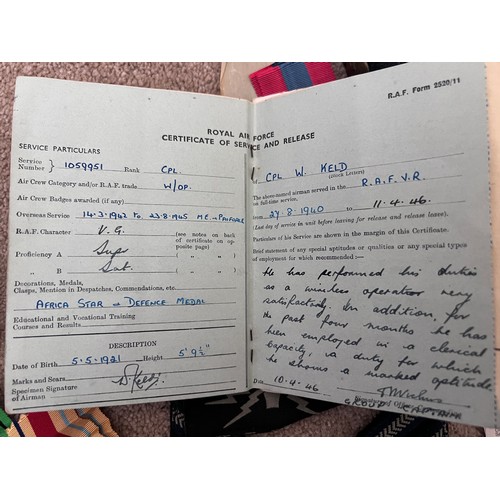 ROYAL AIR FORCE
CERTIFICATE OF SERVICE AND RELEASE
SERVICE PARTICULARS
Service Number } 1059951 Rank CPL.
Air Crew Category and/or R.A.F. trade W/OP.
Air Crew Badges awarded (if any)
Overseas Service 14.3.1942 to 23.8.1945 M.E.
R.A.F. Character V.G. (see notes on back of certificate on opposite page)
Proficiency A Supr
„ B Sat.
Decorations, Medals,
Clasps, Mention in Despatches, Commendations, etc.
AFRICA STAR DEFENCE MEDAL
Educational and Vocational Training
Courses and Results
DESCRIPTION
Date of Birth 5.5.1921 Height 5' 9½"
Marks and Scars
Specimen Signature
of Airman
R.A.F. Form 2520/11
CPL W. KELD
(Block Letters)
The above-named airman served in the R.A.F.V.R.
on full-time service,
from 27.8.1940 to 11.4.46.
(Last day of service in unit before leaving for release and release leave).
Particulars of his Service are shown in the margin of this Certificate.
Brief statement of any special aptitudes or qualities or any special types
of employment for which recommended:—
He has performed his duties
as a wireless operator very
satisfactorily, In addition, for
the past four months he has
been employed in a clerical
capacity, a duty for which
he shows a marked aptitude
Date 10.4.46
GROUP CAPTAIN